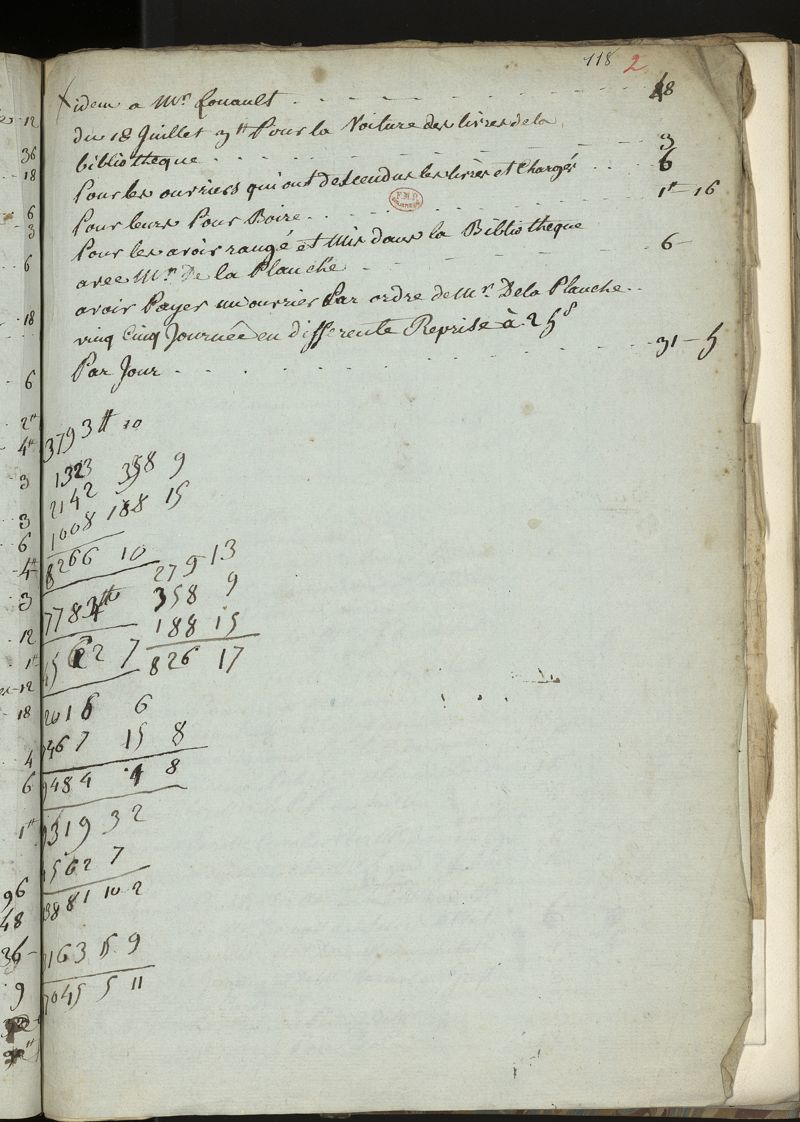 118 2
idem a Mr Rouault - - - - - 48
du 18 Juillet 3tt Pour la Voiture des livres de la
bibliotheque - - - - - 3
Pour les ouvriers qui ont descendus les livres et Chargés - - 6
Pour leurs Pour Boire - - - - - 1tt - 16
Pour les avoir rangé et Mis dans la Bibliotheque
avec Mr De la Planche - - - - - 6 -
avoir Payer un ouvrier Par ordre de Mr Dela Planche - -
vinq Cinq Journée en differente Reprise à 25s
Par Jour - - - - - 31 - 5
3793tt 10
1323 358 9
2142 188 15
1008
8266 10
279 13
7783tt 358 9
188 15
15622 7 826 17
2016 6
467 15 8
484 1 8
319 3 2
1562 7
3881 10 2
163 15 9
7045 5 11
12
36
18
6
3
6
18
6
2tt
4tt
3
3
6
4tt
3
12
1tt
12
18
4
6
1tt
96
48
36
9